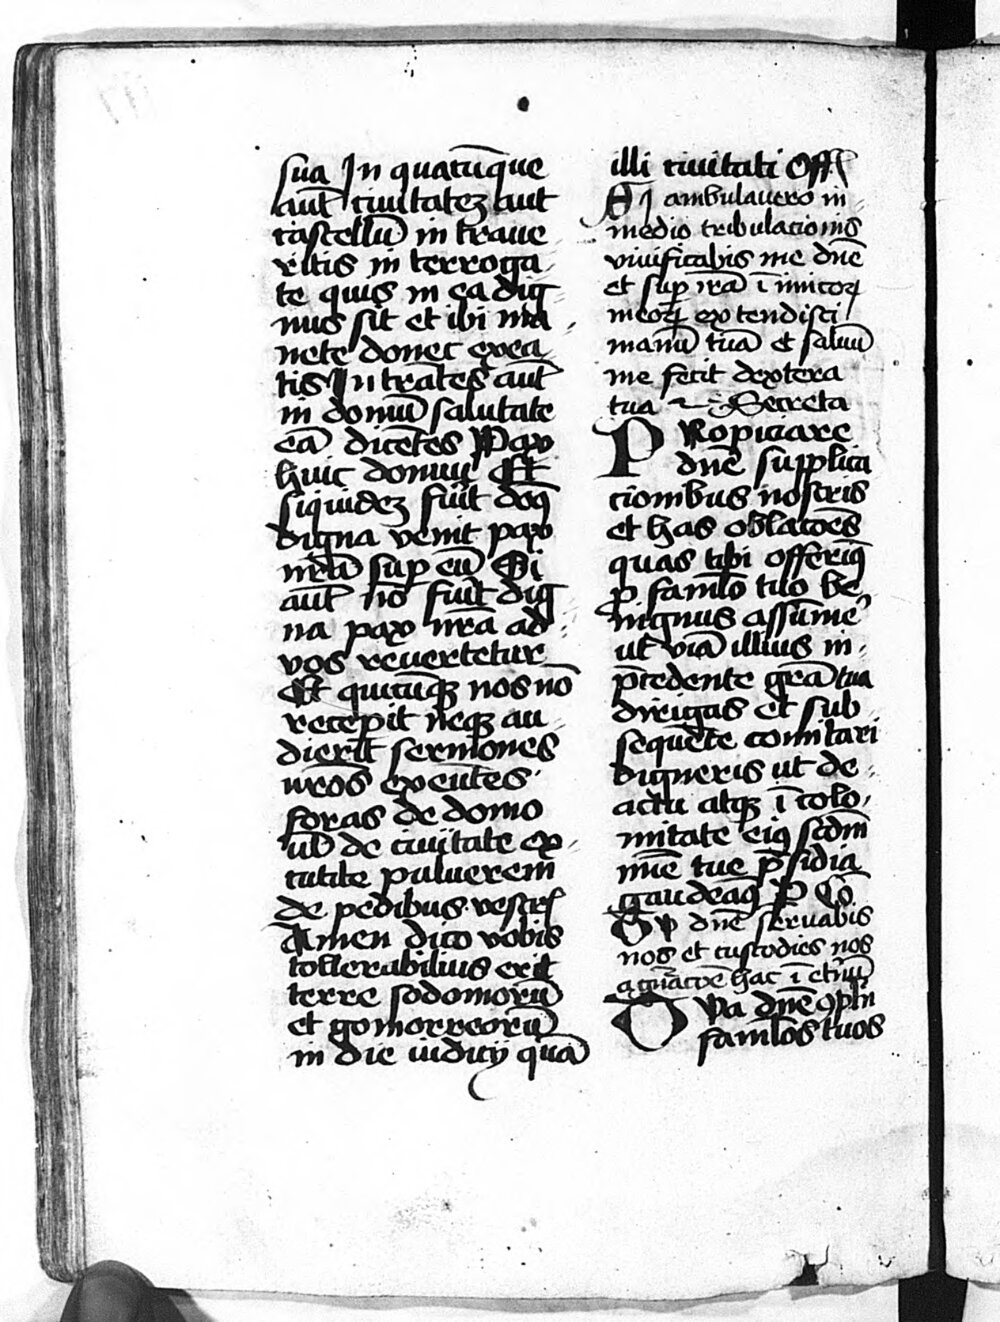 sua In quacūque
aut̄ ciuitatez aut
castellū in traue
ritis in terroga
te quis in ea dig
nus sit et ibi ma
nete donec exea
tis In trātes aut̄
in domū salutate
eā dicētes Pax
huic domui Et
siquidez fuit̄ doꝫ
digna venit pax
vr̄a sup eū Si
aut̄ nō fuit̄ dig
na pax vr̄a ad
vos reuertetur
Et quicūqꝫ nos nō
recepit neqꝫ au
dierit sermones
vr̄os exeūtes
foras de domo
uł de ciuitate ex
cutite puluerem
de pedibus vestrꝭ
Amen dico vobis
tollerabilius erit
terre sodomorū
et gomorreorū
in die iudicij quā
illi ciuitati Off̄
Si ambulauero in
medio tribulacionis
viuificabis me dn̄e
et sup irā īimicoꝝ
meoꝝ extendisti
manū tuā et saluū
me fecit dextera
tua Secreta
PRopiciare
dn̄e supplica
cionibus nostris
et has oblacōes
quas tibi offerīꝫ
ꝑ famło tuo be
nignus assūme
ut viā illius in
p̄cedente grā tua
dirigas et sub
sequēte comitari
digneris ut de
actu atqꝫ ī colo
mitate eiꝫ scd̄m
mīe tue p̄sidia
gaudeaꝫ P Cō
Tu dn̄e seruabis
nos et custodies nos
a gn̄acōe hac ī et̄nū
DVa dn̄e qꝫ
famłos tuos